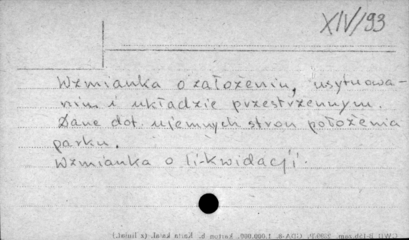 XIV/93
Wzmianka o założeniu, usytuowa-
nim i układzie przestrzennym.
Dane dot. ujemnych stron położenia
parku.
Wzmianka o likwidacji.